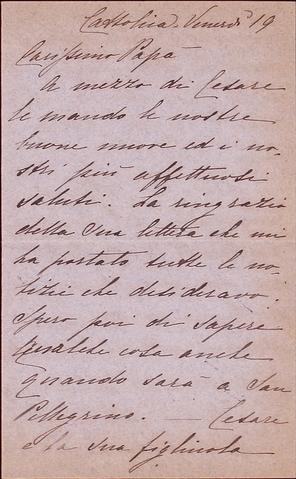 Cattolica - Venerdì 19
Carissimo Papà
A mezzo di Cesare
le mando le nostre
buone nuove ed i no-
stri più affettuosi
saluti. La ringrazio
della sua lettera che mi
ha portato tutte le no-
tizie che desideravo.
Spero poi di sapere
qualche cosa anche
quando sarà a San
Pellegrino. — Cesare
e la sua figliuola